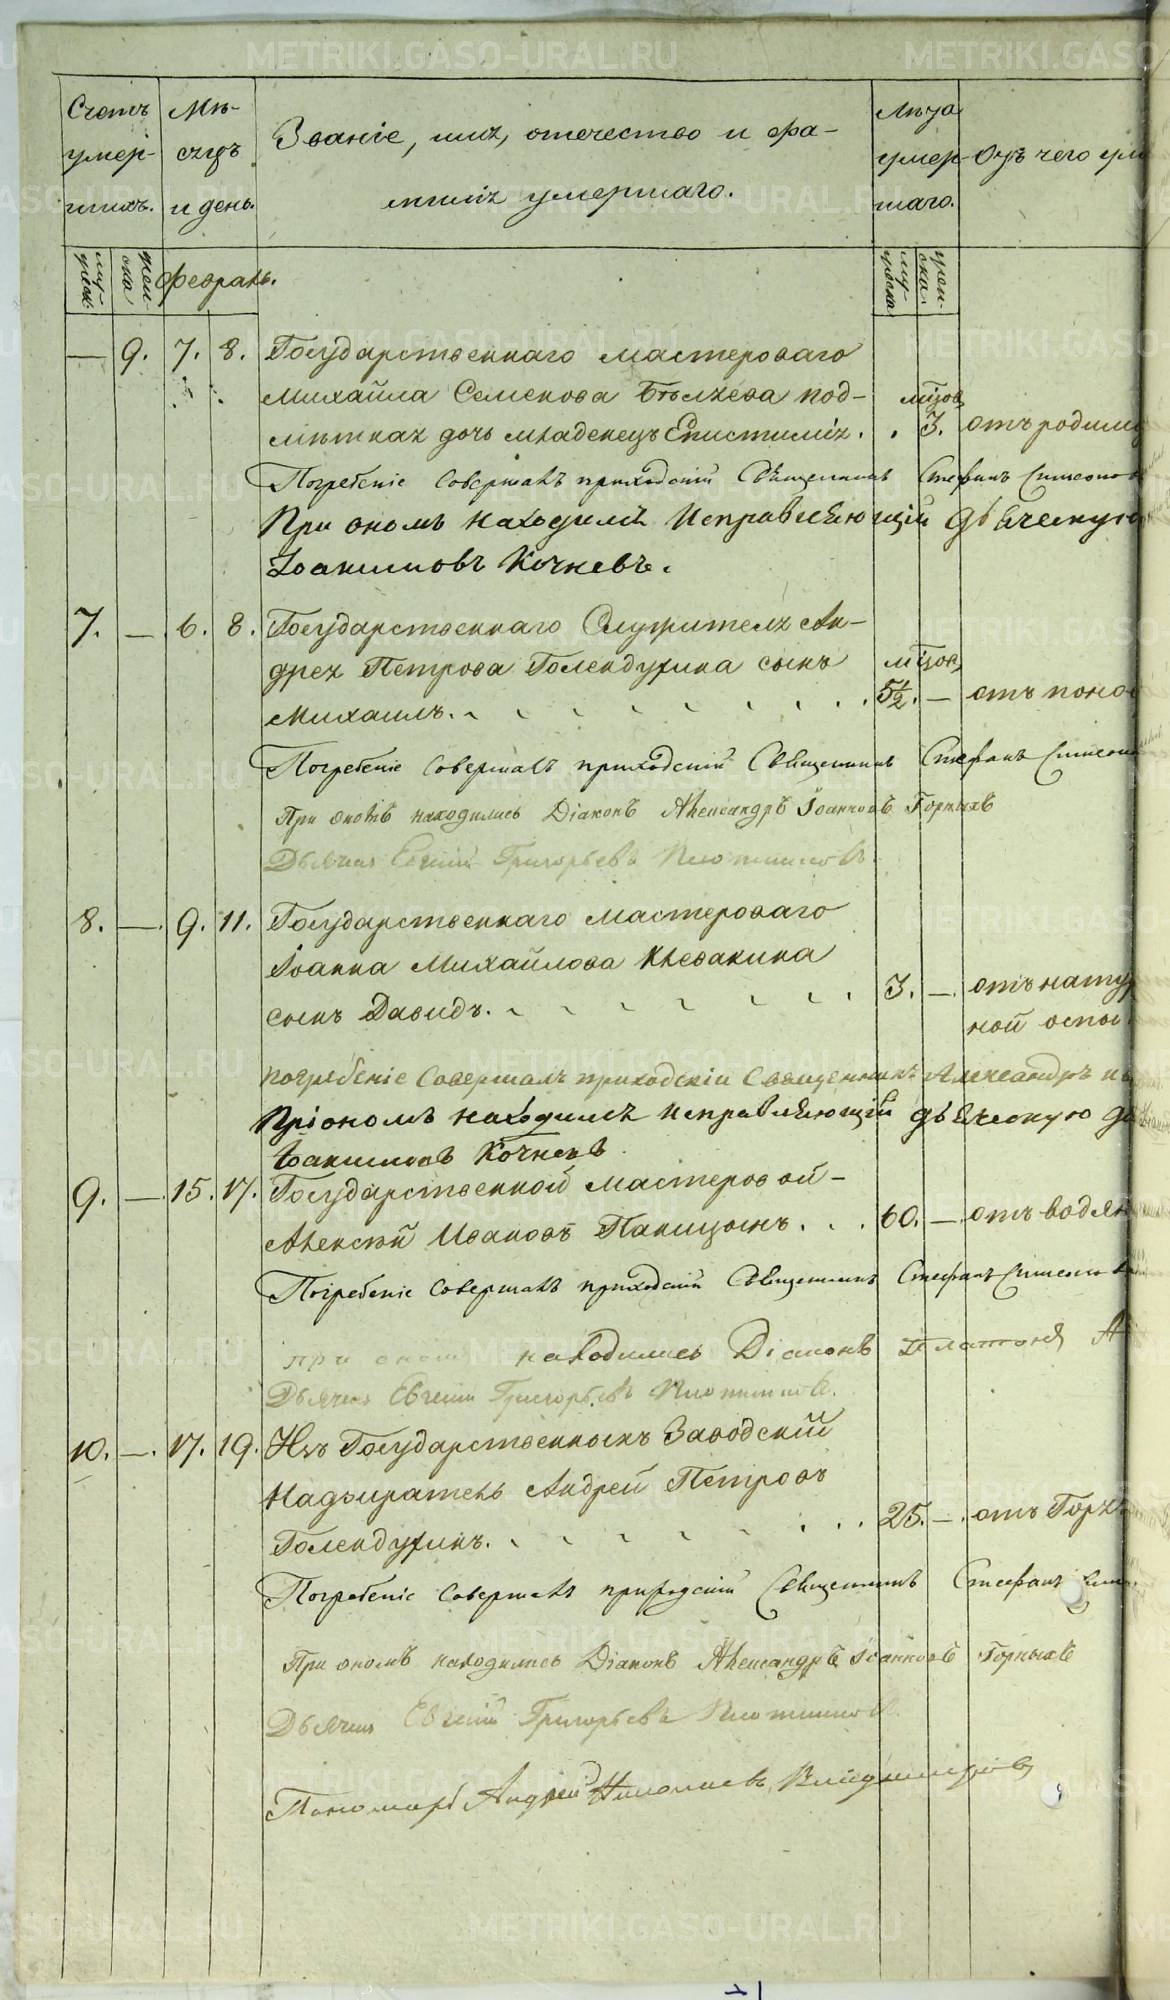 Счетъ умер-шихъ.
Мѣ-сяцъ и день.
Званіе, имя, отечество и фа-
милія умершаго.
Лѣта умер-шаго.
Отъ чего
муж-ск. жен-ска Февраль. муж-ска жен-ска.
— 9. 7. 8. Государственнаго мастероваго
Михайла Семенова Бѣляева под- мѣсяц.
мѣтная дочь младенецъ Епистимія. . . 3. отъ родимц
Погребеніе совершалъ приходскій Священникъ Стефанъ Симеонов
При ономъ находился Исправляющій дьяческую
Іоакимовъ Кочневъ.
7. — 6. 8. Государственнаго Служителя Ан-
дрея Петрова Голендухина сынъ мѣсяц.
Михаилъ. 5½. — отъ понос
Погребеніе совершалъ приходскій Священникъ Стефанъ Симеон
При ономъ находились Діаконъ Александръ Іоанновъ Горныхъ
Дьячекъ Евгеній Григорьевъ Плотниковъ.
8. — 9. 11. Государственнаго мастероваго
Іоанна Михайлова Клевакина
сынъ Давидъ. 3. — отъ натур
ной оспы.
погребеніе совершалъ приходскій Священникъ Александръ
Пріономъ находился исправляющій дьяческую
Іоакимовъ Кочневъ
9. — 15. 17. Государственной мастеровой
Алексѣй Ивановъ Паницынъ. . . 60. — отъ водян
Погребеніе совершалъ приходскій Священникъ Стефанъ Симеонов
при ономъ находились Діаконъ Платонъ А
Дьячекъ Евгеній Григорьевъ Плотниковъ.
10. — 17. 19. Изъ Государственныхъ Заводскій
Надзиратель Андрей Петровъ
Голендухинъ. 25. — отъ Горя
Погребеніе совершалъ приходскій Священникъ Стефанъ
При ономъ находились Діаконъ Александръ Іоанновъ Горныхъ
Дьячекъ Евгеній Григорьевъ Плотниковъ.
Пономарь Андрей Николаевъ Владимировъ
METRIKI.GASO-URAL.RU